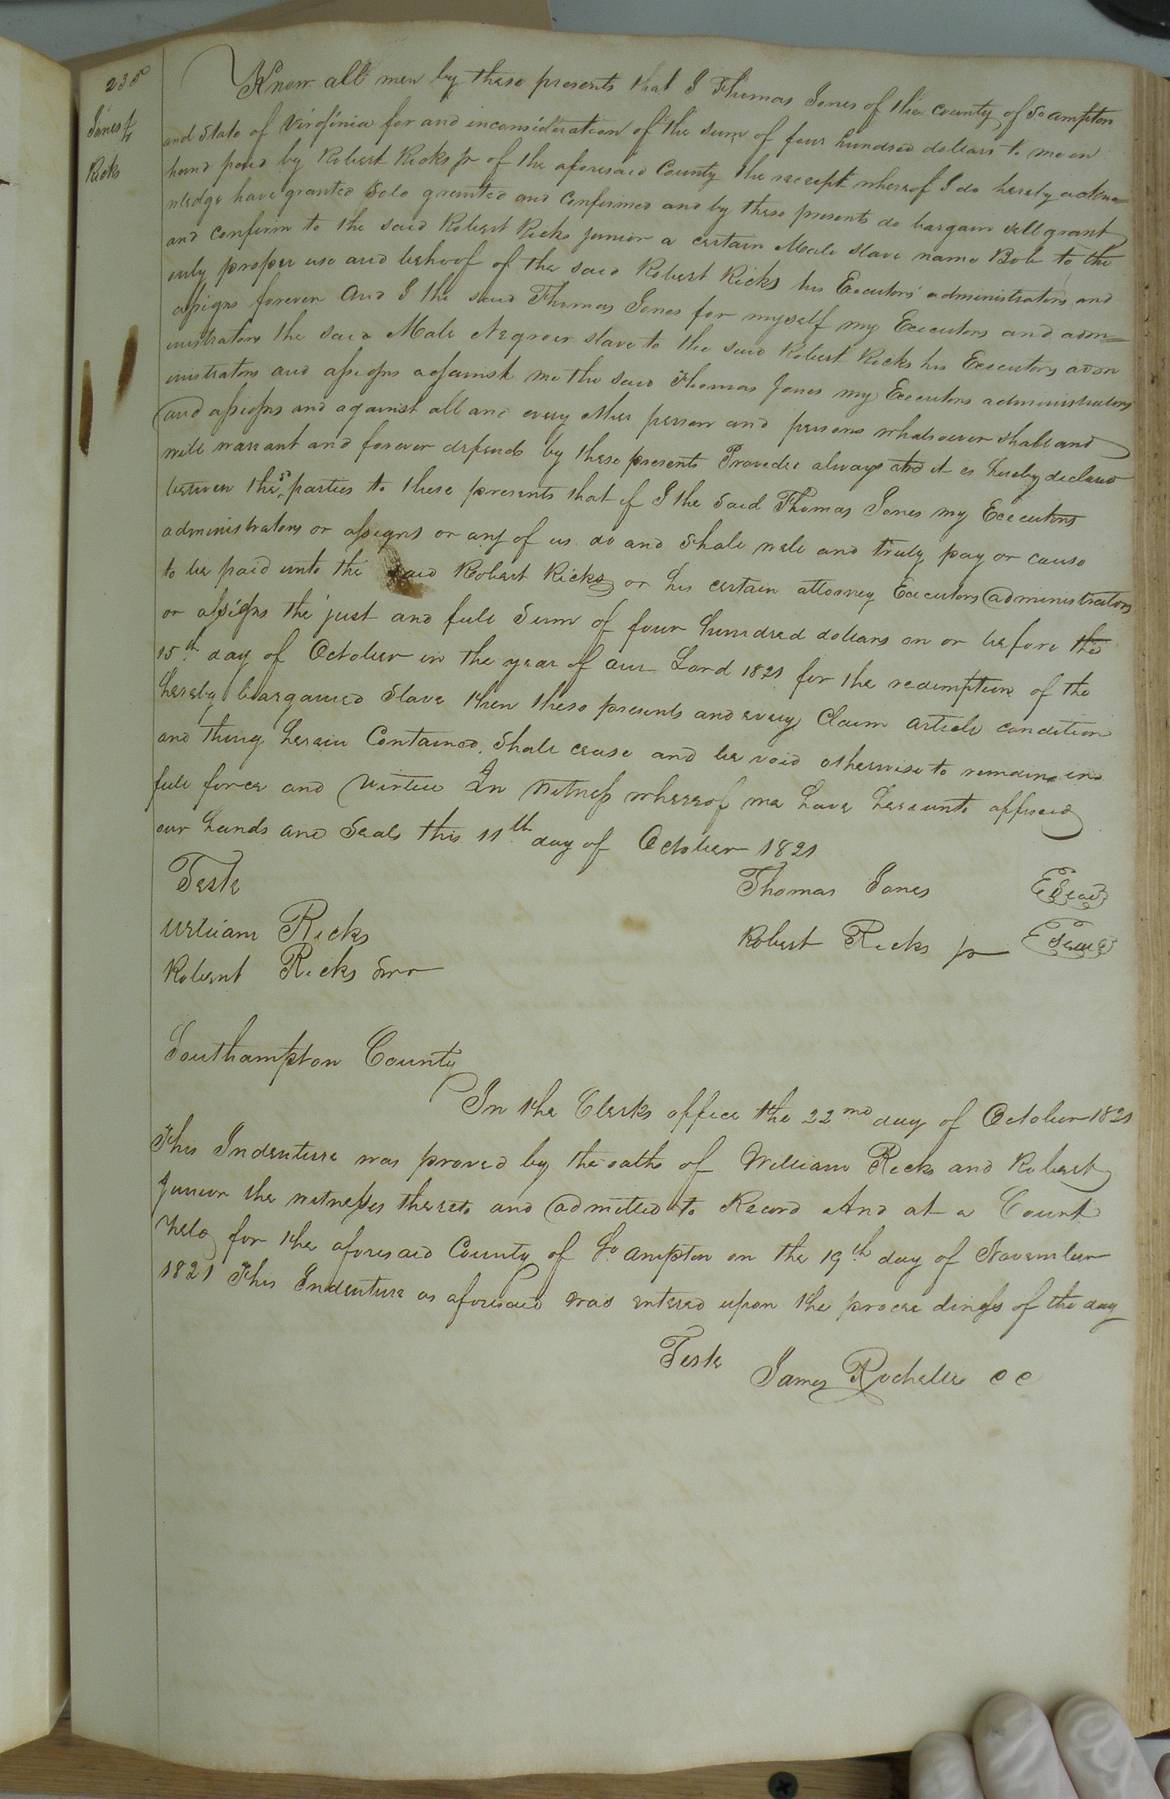 235
Jones
Ricks
Know all men by these presents that I Thomas Jones of the county of So ampton
and State of Virginia for and inconsideration of the sum of four hundred dollars to me in
hand paid by Robert Ricks jr of the aforesaid County the receipt whereof I do hereby ackno=
wledge have granted Sold granted and Confirmed and by these presents do bargain sell grant
and confirm to the said Robert Ricks junior a certain Male slave name Bob to the
only proper use and behoof of the said Robert Ricks his Executors administrators and
assigns forever And I the said Thomas Jones for myself my Executors and adm=
inistrators the said Male slave to the said Robert Ricks his Executors adm
inistrators and assigns against me the said Thomas Jones my Executors administrators
and assigns and against all and every other person and persons whatsoever shall and
will warrant and forever defends by these presents Provided always and it is hereby declared
between the sd parties to these presents that if I the Said Thomas Jones my Executors
administrators or assigns or any of us do and Shall well and truly pay or cause
to be paid unto the said Robert Ricks or his certain attorney Executors administrators
or assigns the just and full Sum of four hundred dollars on or before the
15th day of October in the year of our Lord 1821 for the redemption of the
hereby bargained Slave then these presents and every Claim article condition
and thing herein Contained Shall cease and be void otherwise to remain in
full force and virtue In Witness whereof we have hereunto affixed
our hands and Seals this 11th day of October 1821
Teste
Thomas Jones Seal
William Ricks
Robert Ricks jr Seal
Robert Ricks Snr
Southampton County
In the Clerks office the 22nd day of October 1821
This Indenture was proved by the oaths of William Ricks and Robert
Junior the witnesses thereto and admitted to Record And at a Court
held for the aforesaid County of So ampton on the 19th day of November
1821 This Indenture as aforesaid was entered upon the procee dings of the day
Teste
James Rochelle CC